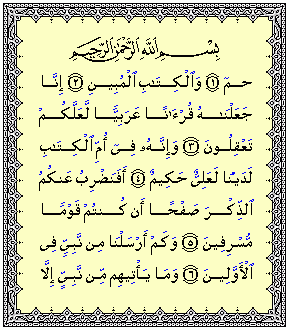 بِسْمِ ٱللَّهِ ٱلرَّحْمَٰنِ ٱلرَّحِيمِ
حمٓ ۝١ وَٱلْكِتَٰبِ ٱلْمُبِينِ ۝٢ إِنَّا
جَعَلْنَٰهُ قُرْءَٰنًا عَرَبِيًّا لَّعَلَّكُمْ
تَعْقِلُونَ ۝٣ وَإِنَّهُۥ فِىٓ أُمِّ ٱلْكِتَٰبِ
لَدَيْنَا لَعَلِىٌّ حَكِيمٌ ۝٤ أَفَنَضْرِبُ عَنكُمُ
ٱلذِّكْرَ صَفْحًا أَن كُنتُمْ قَوْمًا
مُّسْرِفِينَ ۝٥ وَكَمْ أَرْسَلْنَا مِن نَّبِىٍّ فِى
ٱلْأَوَّلِينَ ۝٦ وَمَا يَأْتِيهِم مِّن نَّبِىٍّ إِلَّا